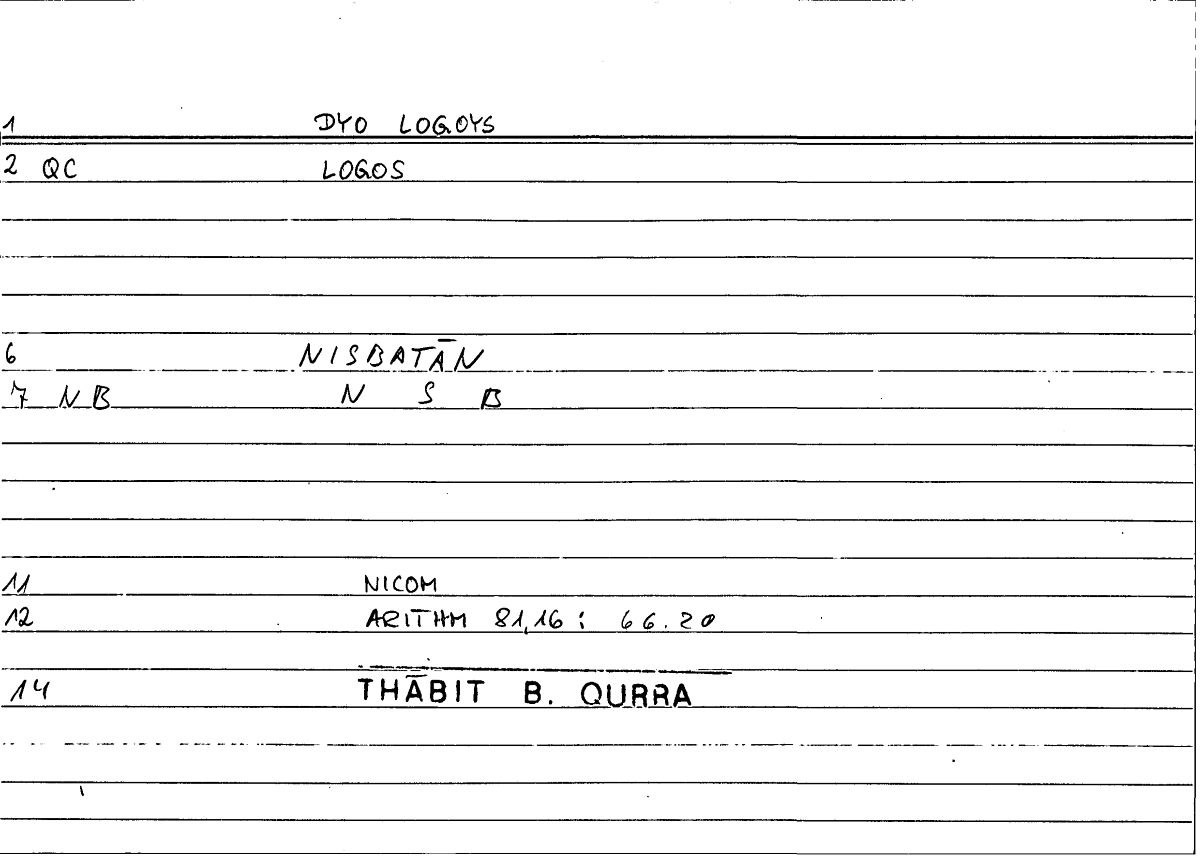 1 DYO LOGOYS
2 QC LOGOS
6 NISBATĀN
7 NB N S B
11 NICOM
12 ARITHM 81,16 : 66.20
14 THĀBIT B. QURRA